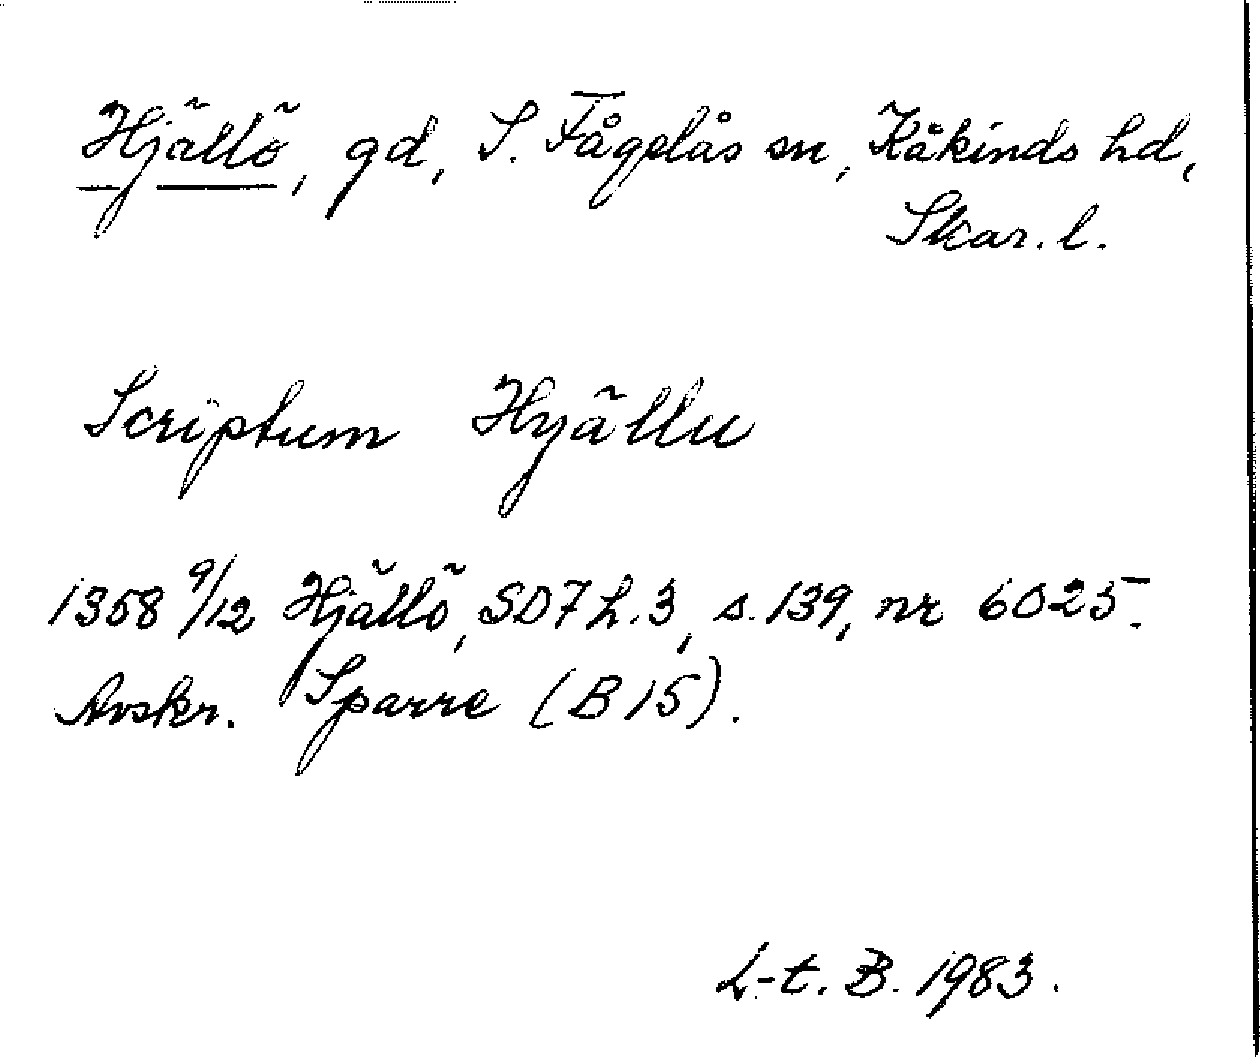 Hjällö, gd, S. Fågelås sn, Kåkinds hd,
Skar. l.
Scriptum Hyällu
1358 9/12 Hjällö, SD7 h.3, s.139, nr 6025.
Avskr. Sparre (B 15).
L-t. B. 1983.